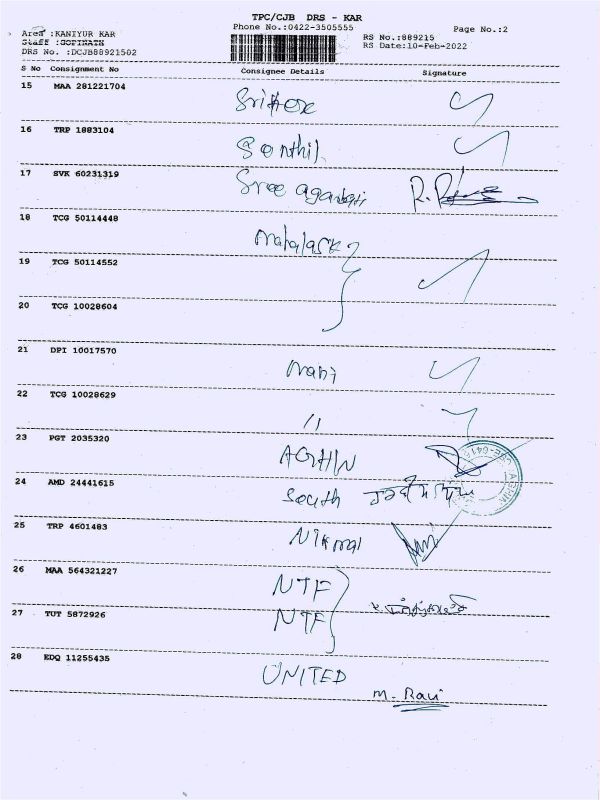 TPC/CJB DRS - KAR
Area :KANIYUR KAR Phone No.:0422-3505555 Page No.:2
Staff :GOPINATH RS No.:889215
DRS No. :DCJB88921502 RS Date:10-Feb-2022
S No Consignment No Consignee Details Signature
15 MAA 281221704
16 TRP 1883104 Senthil
17 SVK 60231319 Sree agarbati
18 TCG 50114448
19 TCG 50114552
20 TCG 10028604
21 DPI 10017570 mani
22 TCG 10028629 11
23 PGT 2035320
24 AMD 24441615 South
25 TRP 4601483 Nirmal
26 MAA 564321227 NTF
27 TUT 5872926 NTF
28 EDQ 11255435 UNITED
M. Ravi